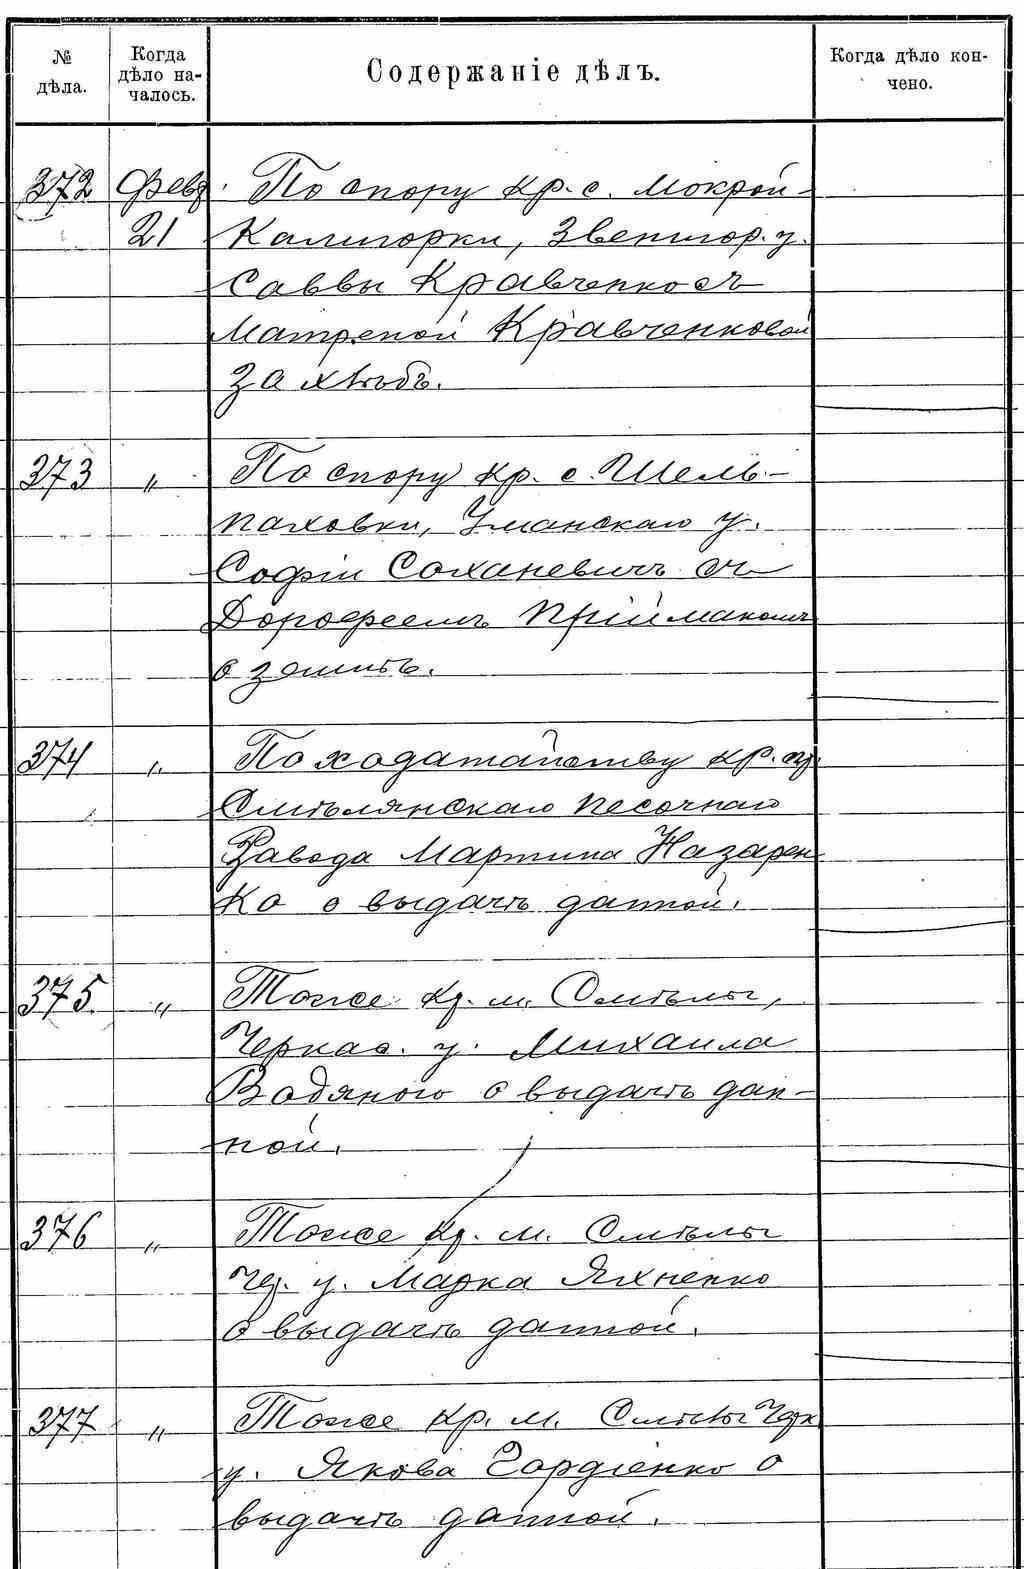 № дѣла.
Когда дѣло началось.
Содержаніе дѣлъ.
Когда дѣло кончено.
372 Февр. 21 По спору кр. с. Мокрой-
Калигорки, Звенигор. у.
Саввы Кравченко съ
Матреной Кравченковой
за хлѣбъ.
373 „ По спору кр. с. Шель-
паховки, Уманскаго у.
Софіи Соханевичъ съ
Дорофеемъ Прійманомъ
о землѣ.
374 „ По ходатайству кр.
Смѣлянскаго песочнаго
Завода Мартина Назарен
ко о выдачѣ данной.
375. „ Тоже кр. м. Смѣлы,
Черкас. у. Михаила
Водяного о выдачѣ дан-
ной.
376 „ Тоже кр. м. Смѣлы
Чер. у. Марка Яхненко
о выдачѣ данной.
377 „ Тоже кр. м. Смѣлы Черк
у. Якова Гордіенко о
выдачѣ данной.